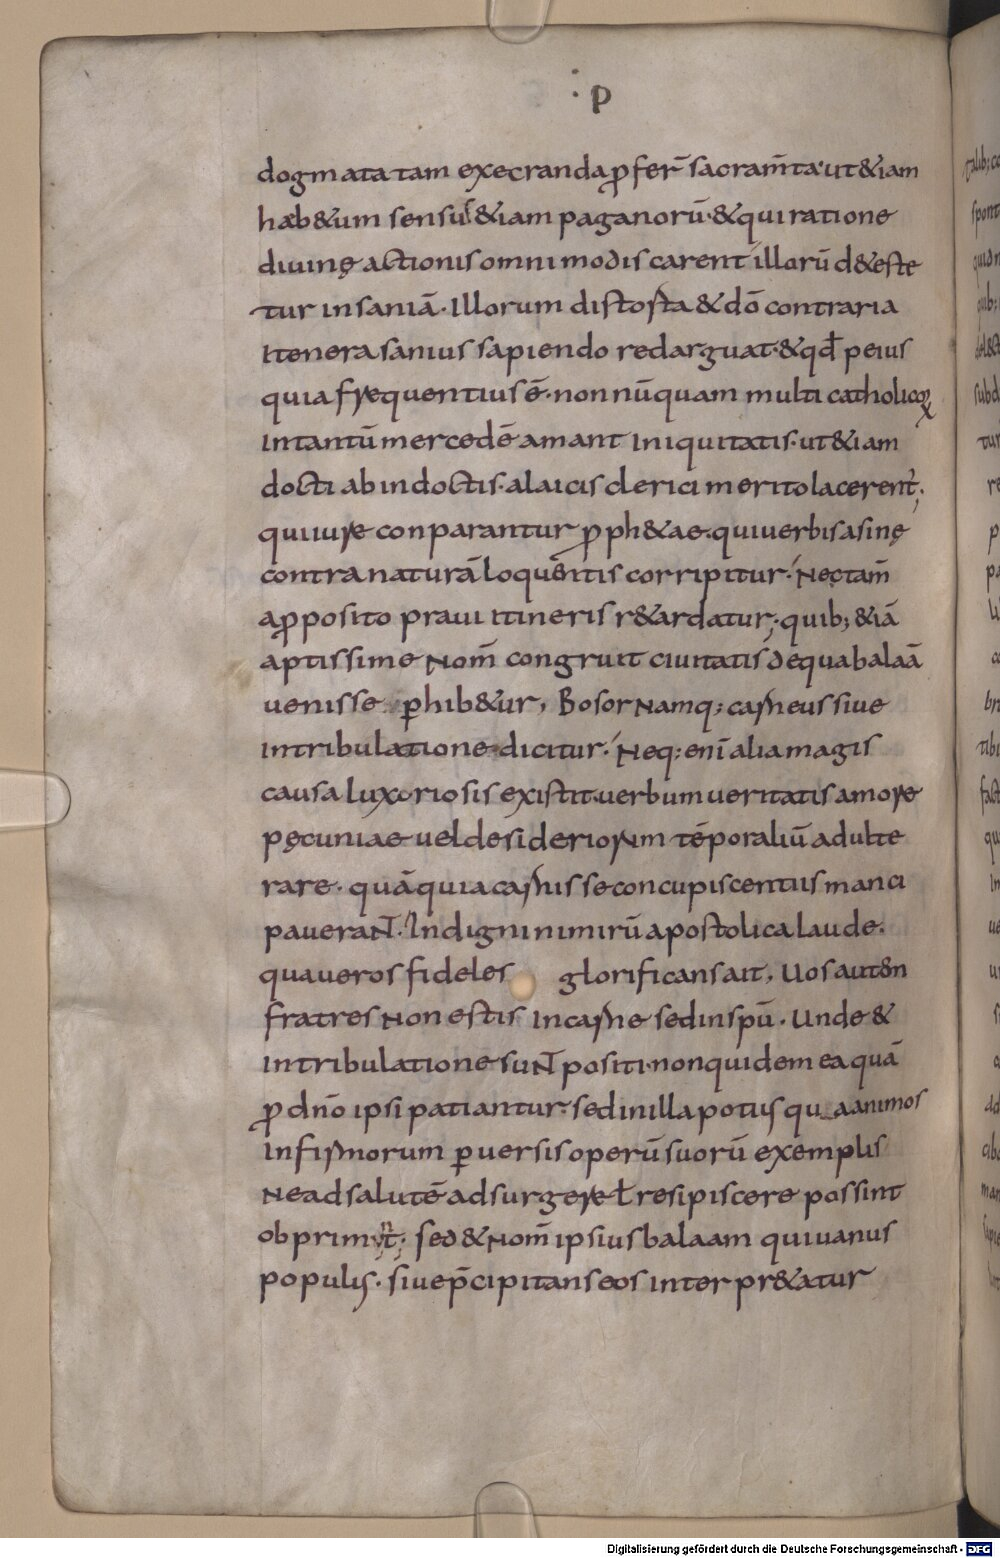 ·p
dogmata tam execranda ꝓfer̄ sacram̄ta· ut &iam
hæb&um sensus &iam paganorū· & qui ratione
diuinę actionis omnimodis carent illorū d&este
tur insaniā· Illorum distosta & dō contraria
itenera sanius sapiendo redarguat· & qđ peius
quia frequentius ē· non nūquam multi catholicoꝝ
intantū mercedē amant iniquitatis· ut &iam
docti ab indoctis· a laicis clerici merito lacerent̄;
qui iure conparantur ꝓph&ae· qui uerbis asinę
contra naturā loquentis corripitur· Nec tam̄
a ꝓposito praui itineris r&ardatur; quib; &iā
aptissime nom̄ congruit ciuitatis de qua balaā
uenisse ꝑhib&ur, Bosor namq; carneus siue
in tribulatione dicitur· Neq; eni alia magis
causa luxoriosis existit· uerbum ueritatis amore
pęcuniae uel desideriorum tēporaliū adulte
rare· quā quia carnis se concupiscentiis manci
paueraɴt̄· Indigni nimirū apostolica laude·
qua ueros fideles glorificans ait, Uos autem
fratres non estis in carne sed in spū· Unde &
in tribulatione suɴt̄ positi· non quidem ea quā
ꝓ dn̄o ipsi patiantur· sed in illa potius qua animos
infirmorum ꝑuersis operū suorū exemplis
ne ad salutē adsurgere ł resipiscere possint
obprimunt; sed & nom̄ ipsius balaam qui uanus
populis· siue p̄cipitans eos interpr&atur
Digitalisierung gefördert durch die Deutsche Forschungsgemeinschaft - DFG